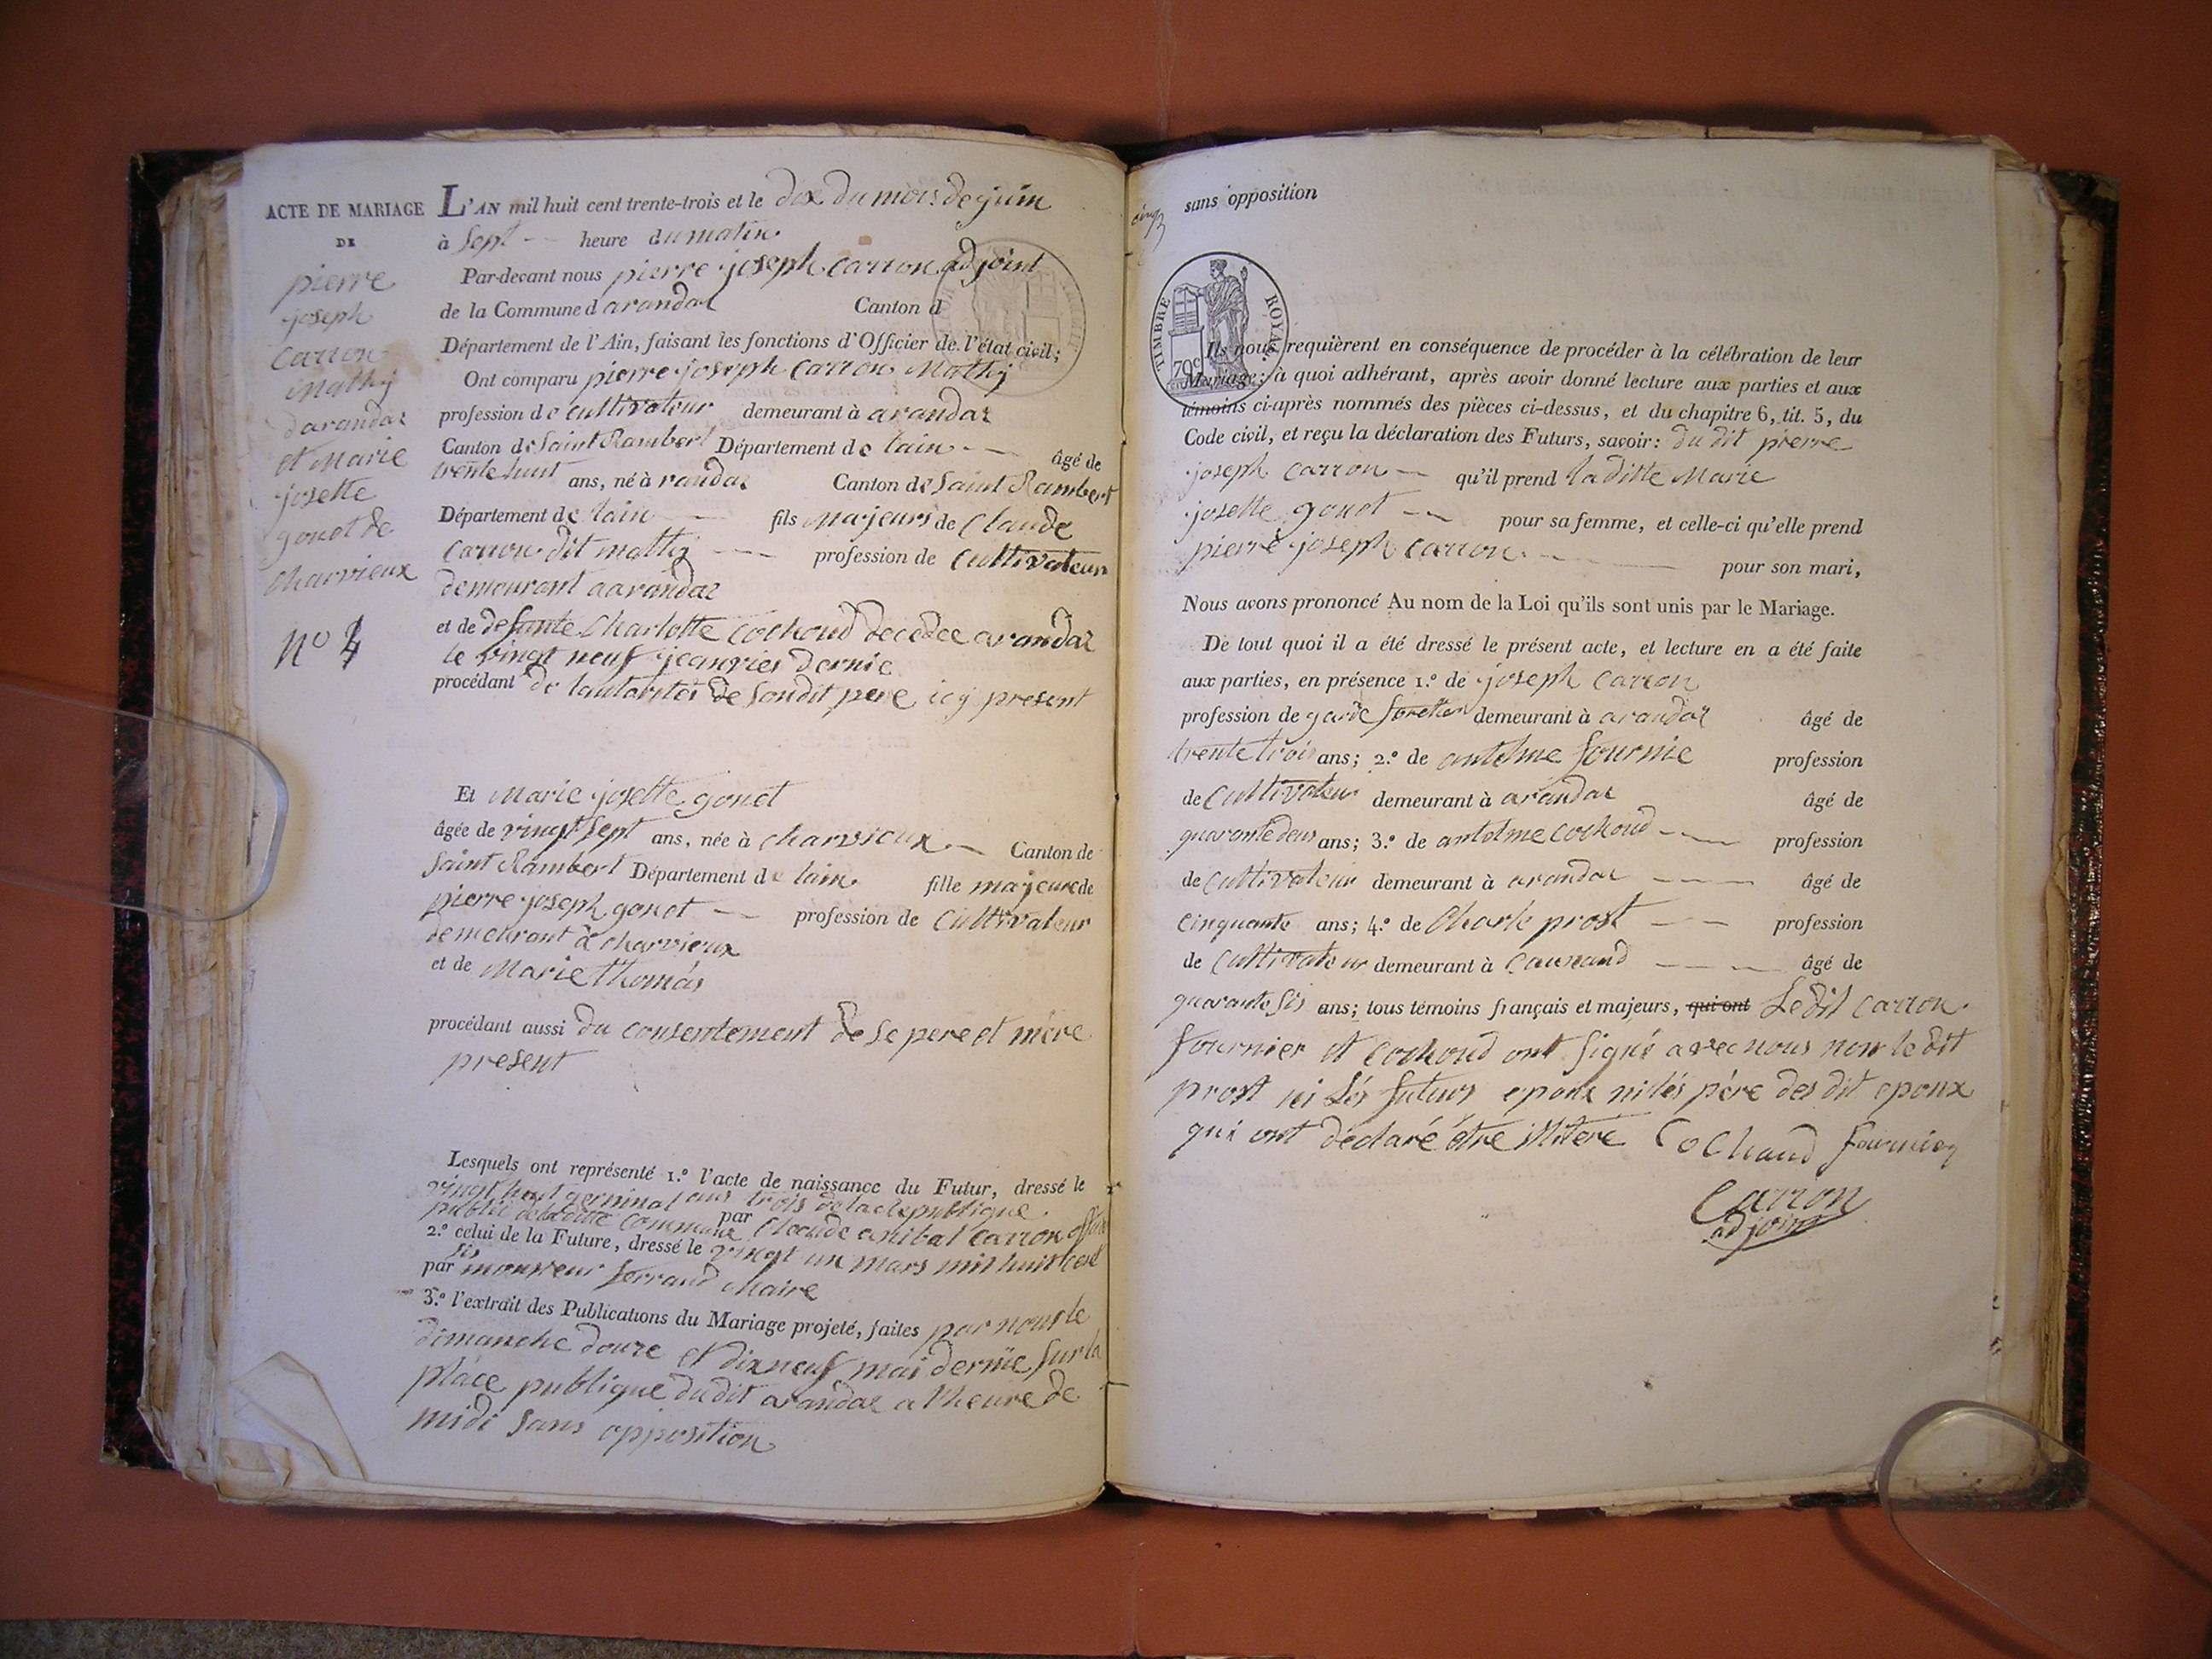 ACTE DE MARIAGE
DE
pierre
joseph
Carron
Mathy
darandas
et Marie
josette
gonet de
Charvieux
No 4
L'AN mil huit cent trente-trois et le dix du mois de juin
à Sept heure du matin
Par-devant nous pierre joseph Carron adjoint
de la Commune d arandas Canton d
Département de l'Ain, faisant les fonctions d'Officier de l'état civil;
Ont comparu pierre joseph Carron Mathy
profession de cultivateur demeurant à arandas
Canton de Saint Rambert Département de lain âgé de
trente huit ans, né à randas Canton de Saint Rambert
Département de lain fils majeurs de Claude
Carron dit matty profession de Cultivateur
demeurant a arandas
et de defunte Charlotte Cochoud decedee arandas
le vingt neuf jeanvier dernie
procédant de lautorites de Sondit pere icy present
Et Marie josette gonet
âgée de vingt Sept ans, née à Charvieux Canton de
Saint Rambert Département de lain fille majeure de
pierre joseph gonet profession de Cultivateur
demeurant à charvieux
et de Marie Thomas
procédant aussi du consentement de se pere et mère
present
Lesquels ont représenté 1.º l'acte de naissance du Futur, dressé le
vingt huit germinal ans trois de la republique
public de laditte Commune par Claude anibal Carron offici
2.º celui de la Future, dressé le vingt un mars mil huit cent
sis
par monsieur ferrand Maire
3.º l'extrait des Publications du Mariage projeté, faites par nous le
dimanche douze et dix neuf mai dernie sur la
place publique dudit arandas a lheure de
midi sans opposition
sans opposition
TIMBRE ROYAL
70c
Ils nous requièrent en conséquence de procéder à la célébration de leur
Mariage; à quoi adhérant, après avoir donné lecture aux parties et aux
témoins ci-après nommés des pièces ci-dessus, et du chapitre 6, tit. 5, du
Code civil, et reçu la déclaration des Futurs, savoir: du dit pierre
joseph Carron qu'il prend la ditte Marie
josette gonet pour sa femme, et celle-ci qu'elle prend
pierre joseph carron pour son mari,
Nous avons prononcé Au nom de la Loi qu'ils sont unis par le Mariage.
De tout quoi il a été dressé le présent acte, et lecture en a été faite
aux parties, en présence 1.º de joseph Carron
profession de garde forettier demeurant à arandas âgé de
trente trois ans; 2.º de antelme fournie profession
de Cultivateur demeurant à arandas âgé de
quarante deus ans; 3.º de antelme cochoud profession
de Cultivateur demeurant à arandas âgé de
cinquante ans; 4.º de Charle prost profession
de Cultivateur demeurant à âgé de
quarante sis ans; tous témoins français et majeurs, qui ont Le dit Carron
fournier et Cochoud ont Signé avec nous non le dit
prost ni Lés futurs epoux ni lés père des dit epoux
qui ont déclaré etre illiteré Cochaud fournier
Carron
adjoint